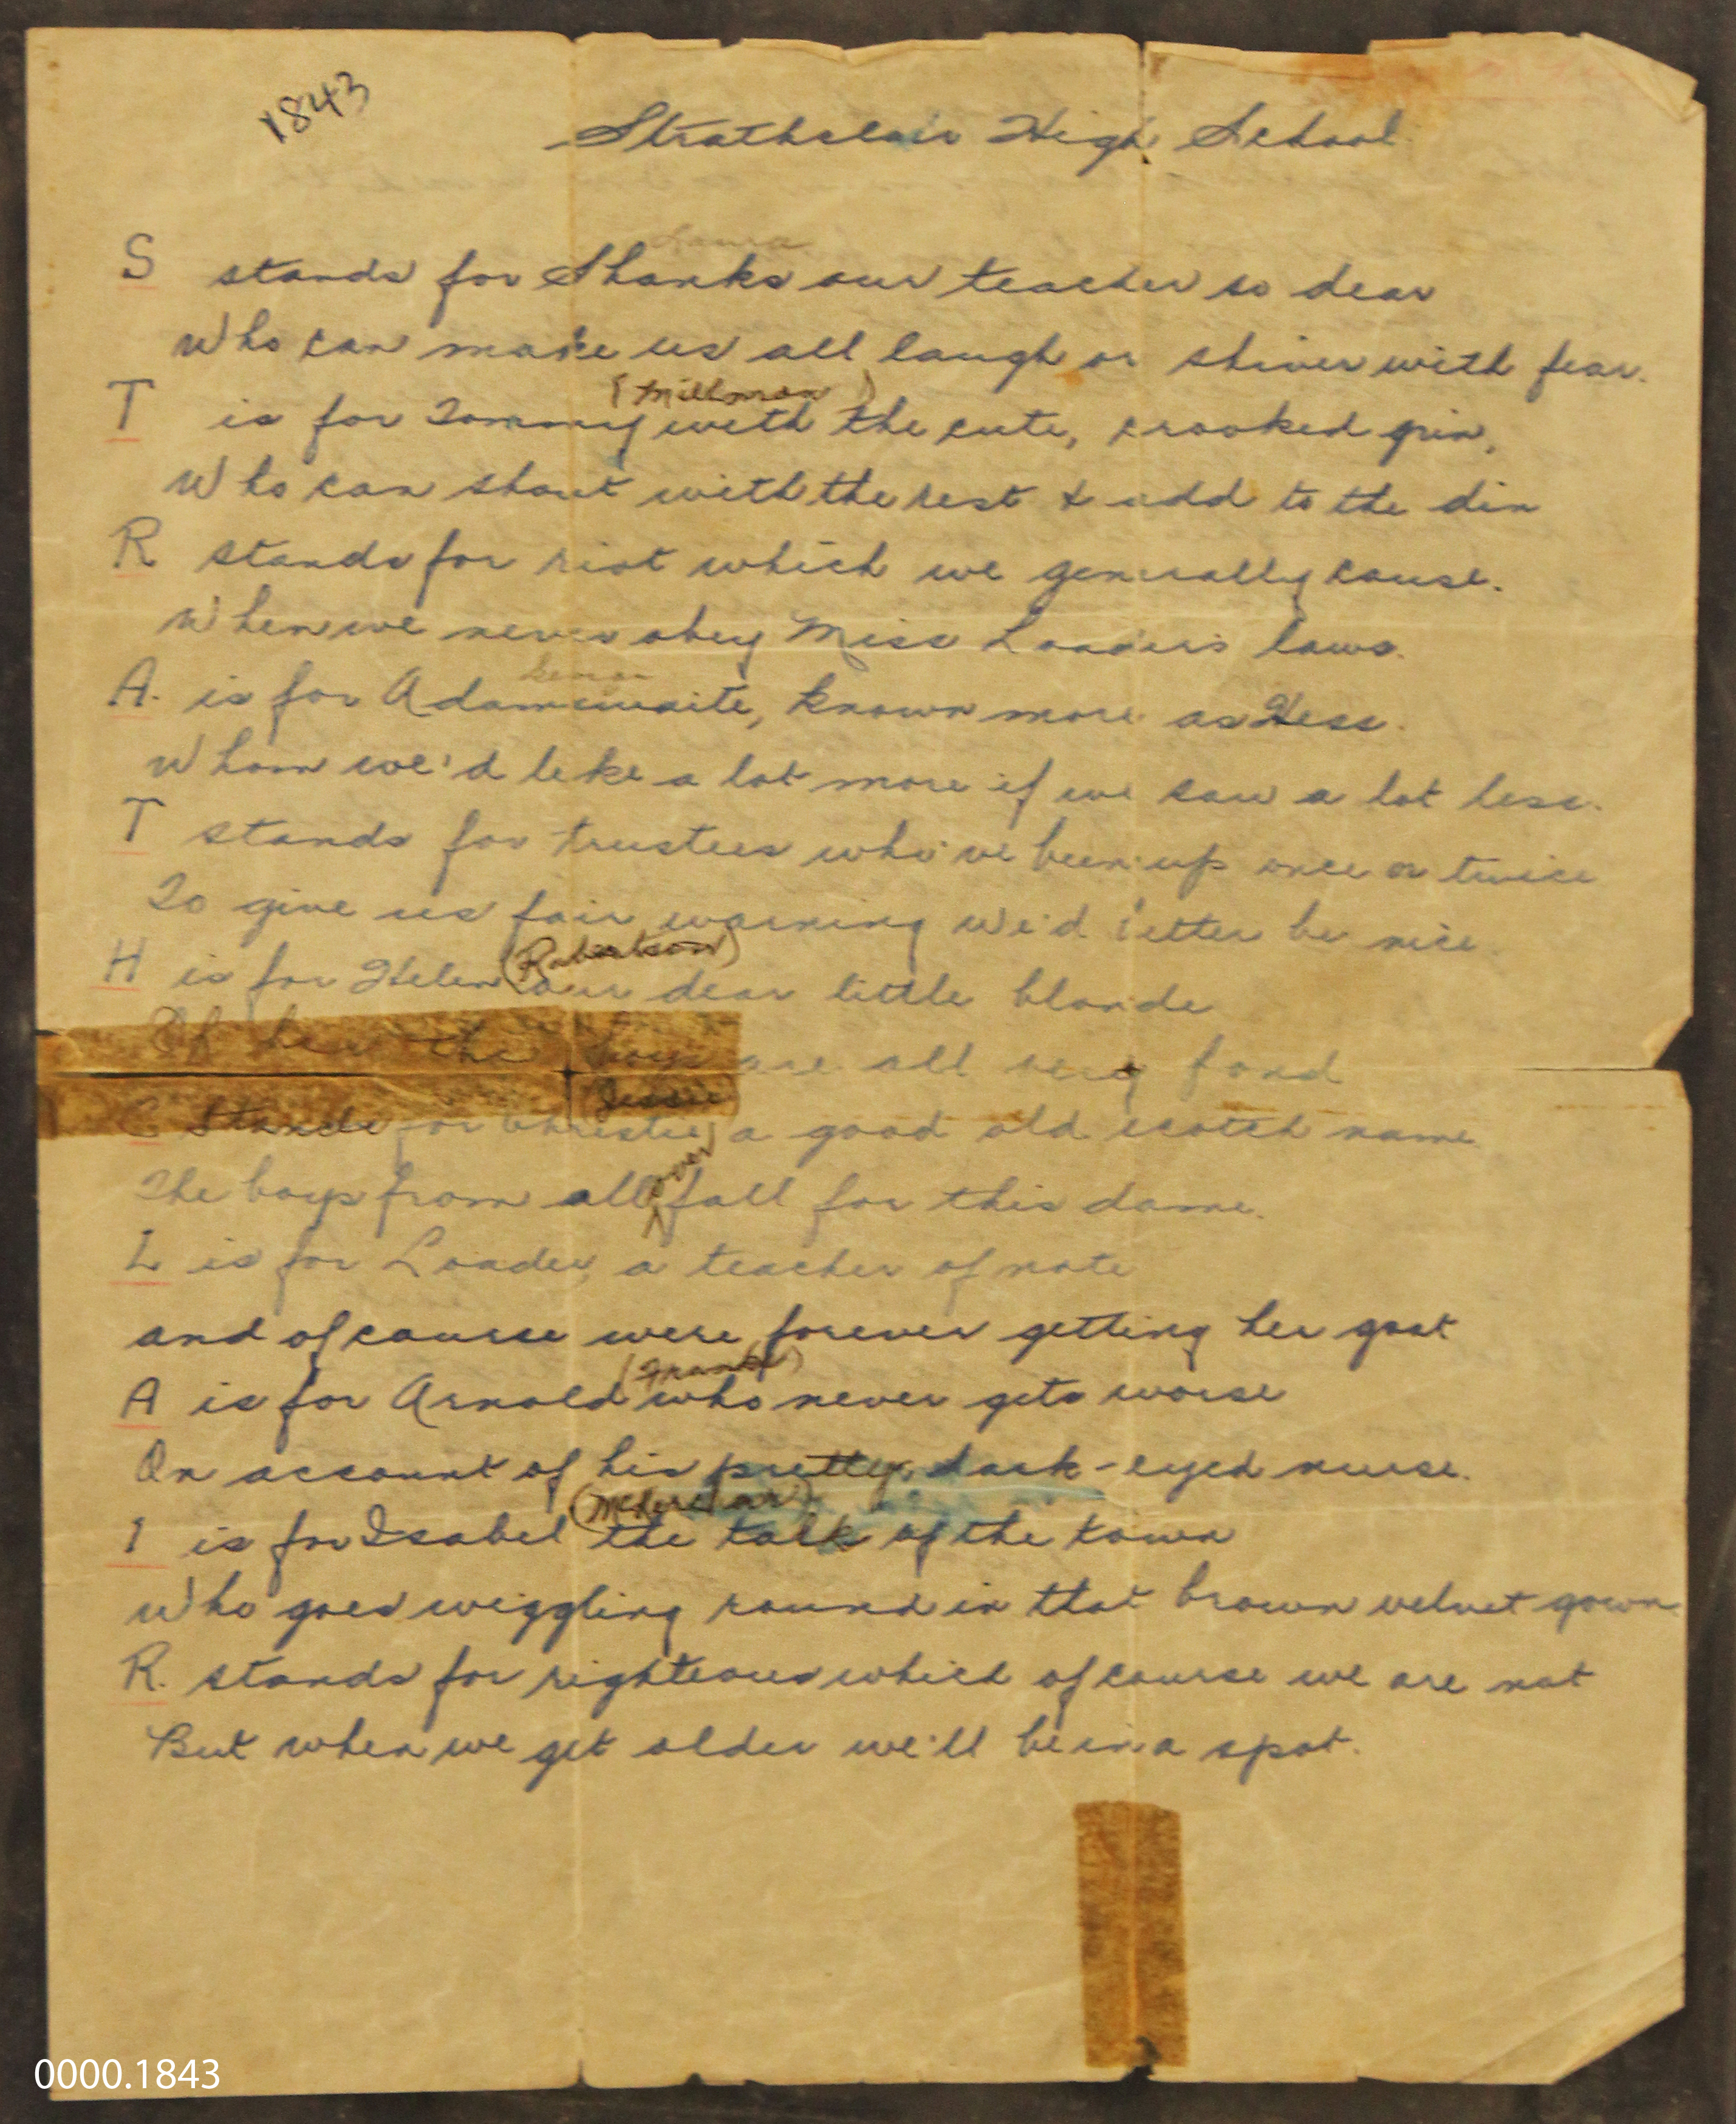 1843
Strathclair High School
Laura
S stands for Shanks our teacher so dear
Who can make us all laugh or shiver with fear.
(Millman)
T is for Tommy with the cute, crooked grin,
Who can shout with the rest & add to the din
R stands for riot which we generally cause.
When we never obey Miss Loader's laws.
A. is for Adamwaite, known more as Hess.
Whom we'd like a lot more if we saw a lot less.
T stands for trustees who've been up once or twice
To give us fair warning we'd better be nice.
(Robertson)
H is for Helen our dear little blonde
Of her the boys are all very fond
(Jessie)
C stands for Christie, a good old scotch name
over
The boys from all fall for this dame.
L is for Loader, a teacher of note
and of course were forever getting her goat
(Frank)
A is for Arnold who never gets worse
On account of his pretty, dark-eyed nurse.
(McKerchar)
I is for Isabel the talk of the town
Who goes wiggling round in that brown velvet gown
R. stands for righteous which of course we are not
But when we get older we'll be in a spot.
0000.1843